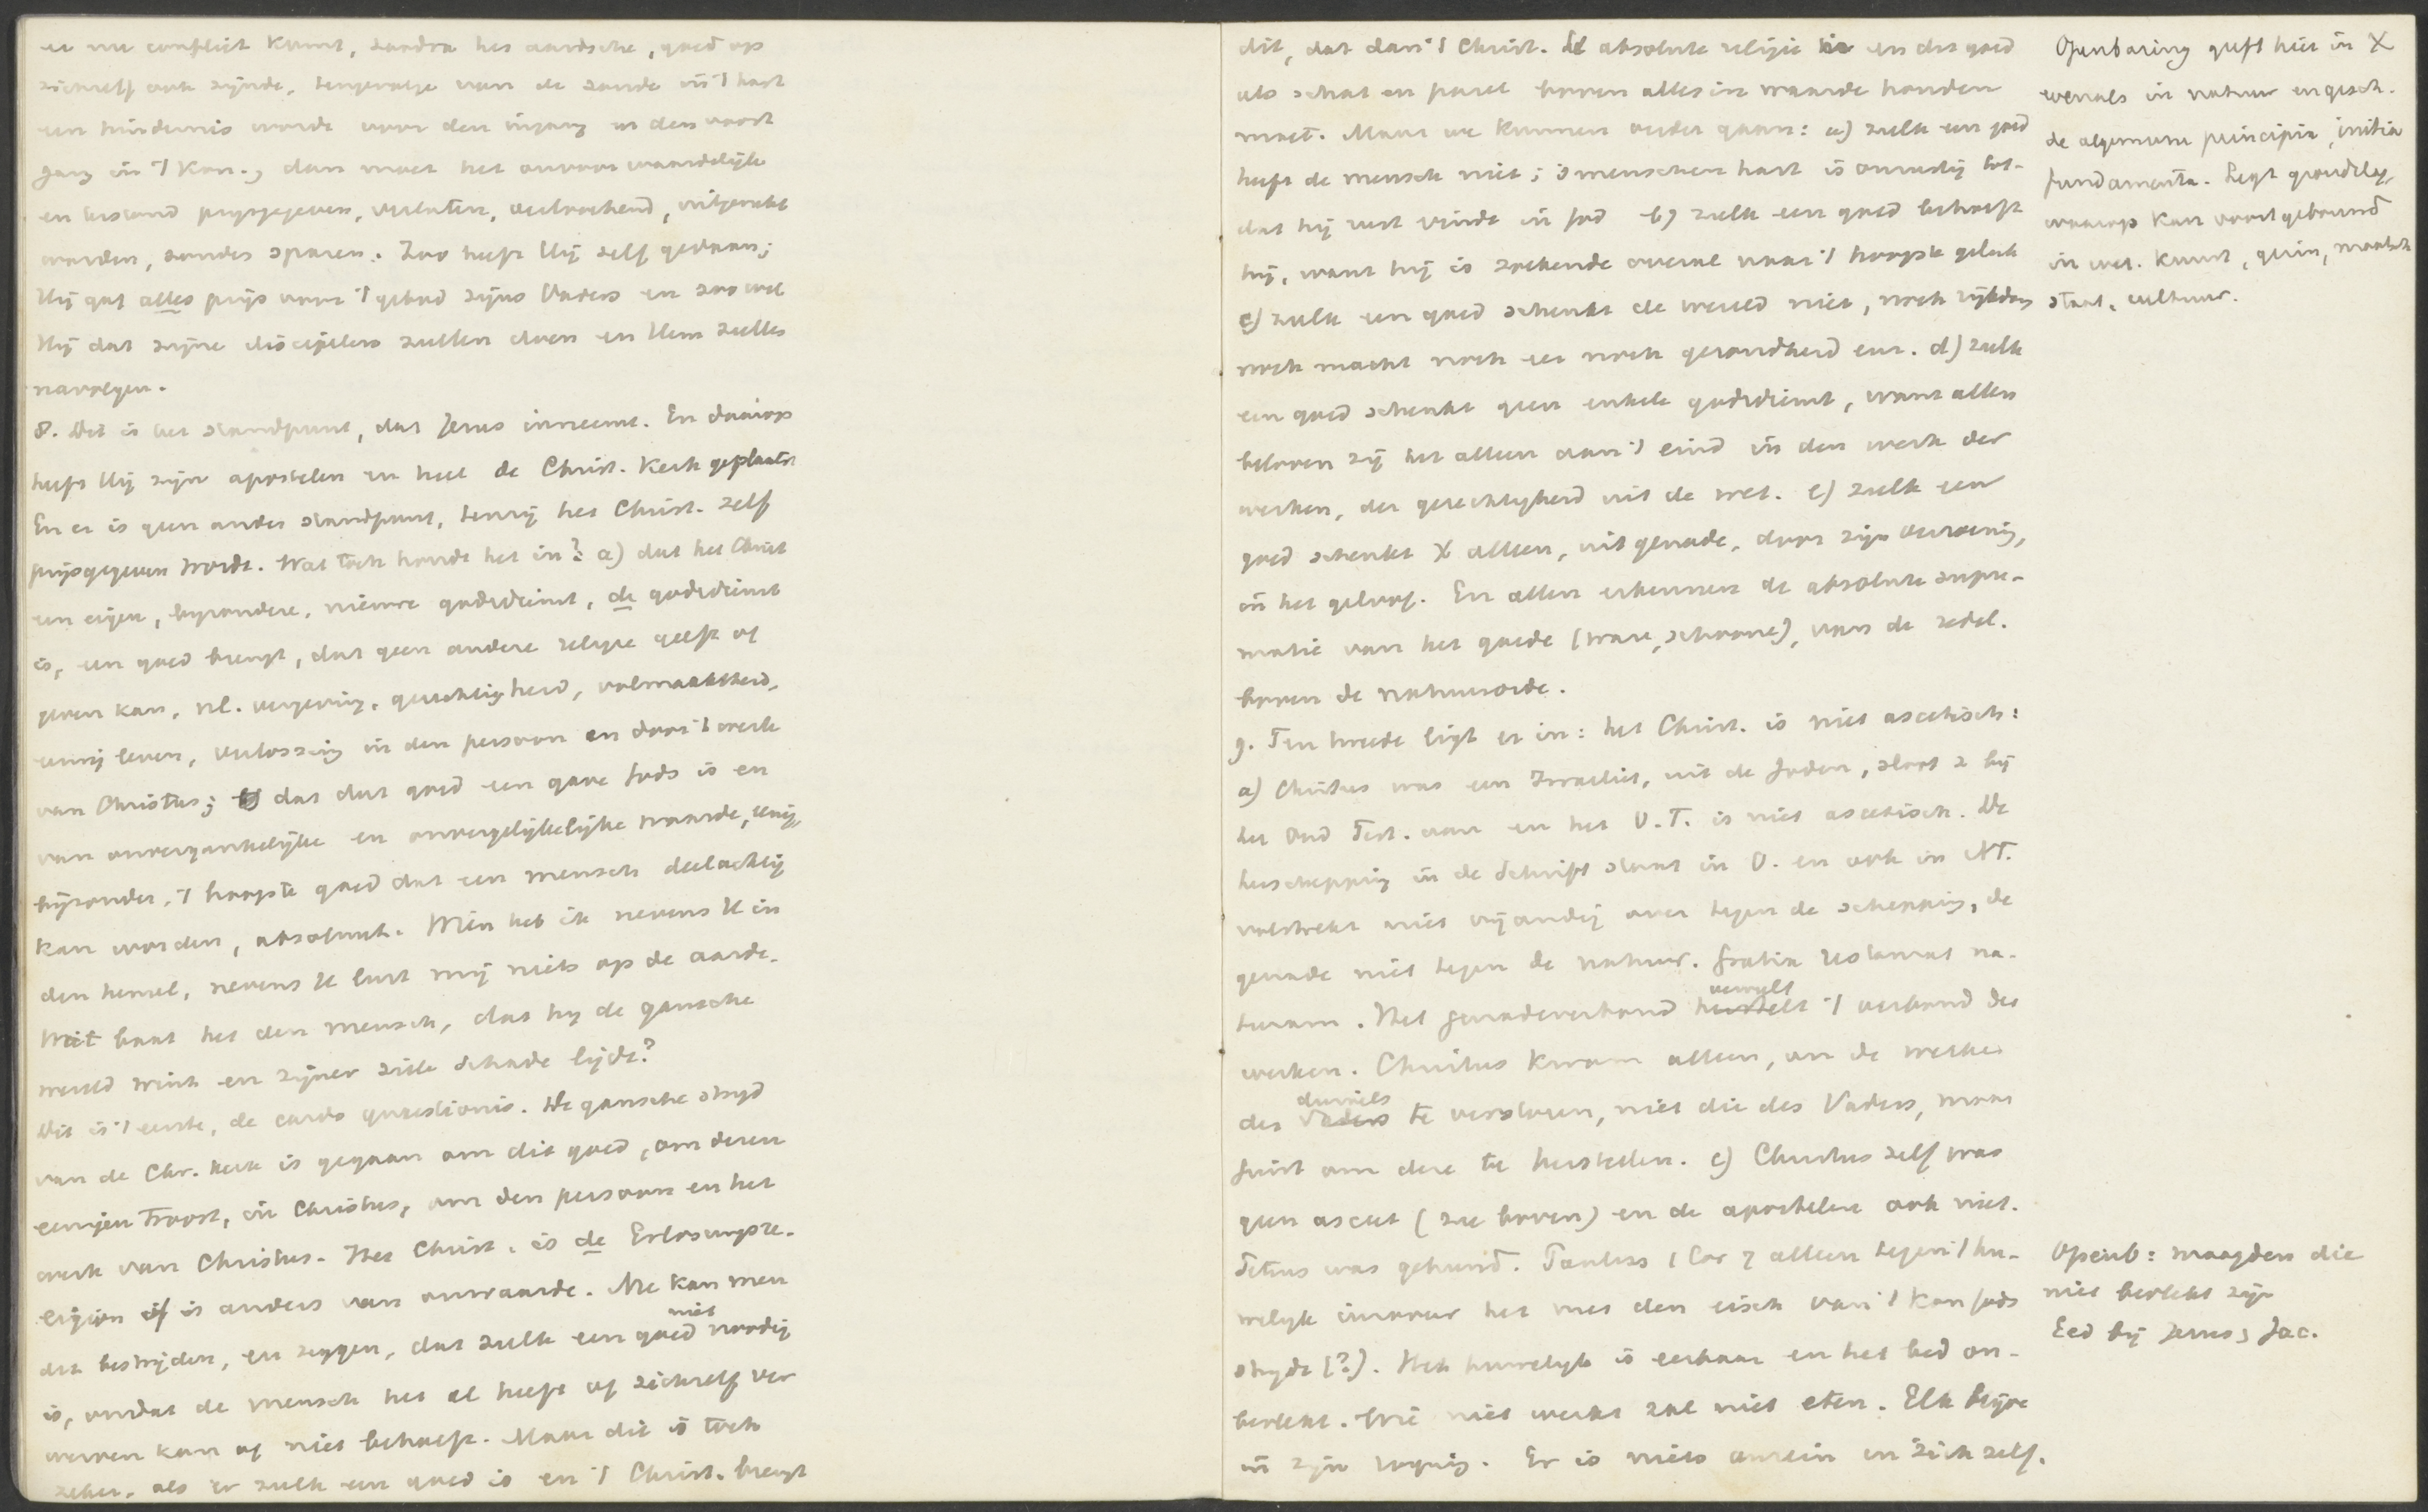 er nu conflict komt, zoodra het aardsche, goed op
zichzelf ook zijnde, tengevolge van de zonde in 't hart
een hindernis wordt voor den ingang en den voort
gang in 't Kon., dan moet het onvoorwaardelijk
en beslist prijsgegeven, verlaten, verloochend, uitgerukt
worden, zonder sparen. Zoo heeft Hij zelf gedaan;
Hij gaf alles prijs voor 't gebod zijns Vaders en zoo wil
Hij dat zijne discipelen zullen doen en Hem zullen
navolgen.
8. Dit is het standpunt, dat Jezus inneemt. En daarop
heeft Hij zijn apostelen en heel de Christ. Kerk geplaatst
En er is geen ander standpunt, tenzij het Christ. zelf
prijsgegeven wordt. Wat toch houdt het in? a) dat het Christ
een eigen, byzondere, nieuwe godsdienst, de godsdienst
is, een goed brengt, dat geen andere religie geeft of
geven kan, nl. vergeving, gerechtigheid, volmaaktheid,
eeuwig leven, verlossing in den persoon en door 't werk
van Christus; b) dat dat goed een gave Gods is en
van onvergankelijke en onvergelijkelijke waarde, eenig,
bijzonder, 't hoogste goed dat een mensch deelachtig
kan worden, absoluut. Wien heb ik nevens U in
den hemel, nevens U lust mij niets op de aarde.
Wat baat het den mensch, dat hij de gansche
wereld wint en zijner ziele schade lijdt?
Dit is 't eerste, de cardo quaestionis. De gansche strijd
van de Chr. kerk is gegaan om dit goed, om deren
eenigen troost, in Christus, om den persoon en het
werk van Christus. Het Christ. is de Erlosungsre-
ligion of is anders van onwaarde. Nu kan men
dit bestrijden, en zeggen, dat zulk een goed niet noodig
is, omdat de mensch het al heeft of zichzelf ver
werven kan of niet behoeft. Maar dit is toch
zeker, als er zulk een goed is en 't Christ. brengt
dit, dat dan 't Christ. de absolute religie is en dit goed
als schat en parel boven alles in waarde houden
moet. Maar we kunnen verder gaan: a) zulk een goed
heeft de mensch niet; 's menschen hart is onrustig tot-
dat hij rust vindt in God b) zulk een goed behoeft
hij, want hij is zoekende overal naar 't hoogste geluk
c) zulk een goed schenkt de wereld niet, noch rijkdom
noch macht noch eer noch gezondheid enz. d) zulk
een goed schenkt geen enkele godsdienst, want allen
beloven zij het alleen aan 't eind in den werk der
werken, der gerechtigheid uit de wet. e) zulk een
goed schenkt X alleen, uit genade, door zijn verzoening,
in het geloof. En allen erkennen de absolute supre-
matie van het goede (ware, schoone), van de zedel.
boven de natuurorde.
9. Ten tweede ligt er in: het Christ. is niet ascetisch:
a) Christus was een Israeliet, uit de Joden, sloot z bij
het Oud Test. aan en het O.T. is niet ascetisch. De
herschepping in de Schrift staat in O. en ook in NT.
volstrekt niet vijandig over tegen de schepping, de
genade niet tegen de natuur. Gratia restaurat na-
turam. Het genadeverbond herstelt vervult 't verbond der
werken. Christus kwam alleen, om de werken
des Vaders duivels te verstoren, niet die des Vaders, maar
juist om deze te herstellen. c) Christus zelf was
geen asceet (zie boven) en de apostelen ook niet.
Petrus was gehuwd. Paulus 1 Cor 7 alleen tegen 't hu-
welijk inzoover het met den eisch van 't Kon Gods
strijdt (?). Het huwelijk is eerbaar en het bed on-
bevlekt. Wie niet werkt zal niet eten. Elk blijve
in zijn roeping. Er is niets onrein in zich zelf.
Openbaring geeft hier in X
evenals in natuur en gesch.
de algemeene principia, initia
fundamenta. Legt grondslag,
waarop kan voortgebouwd
in wet. kunst, gezin, maatsch
staat, cultuur.
Openb: maagden die
niet bevlekt zijn
Eed bij Jezus, Jac.